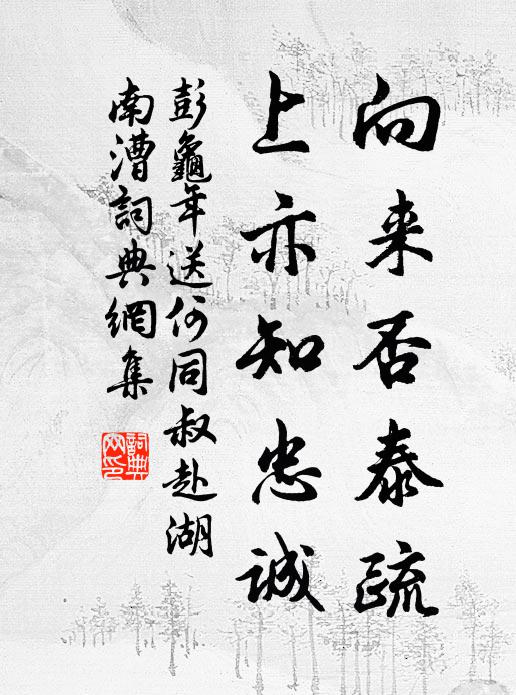 向来否泰疏
上亦知忠诚
彭龜年送何同叔赴湖
南漕詞典網集
詞典
网印